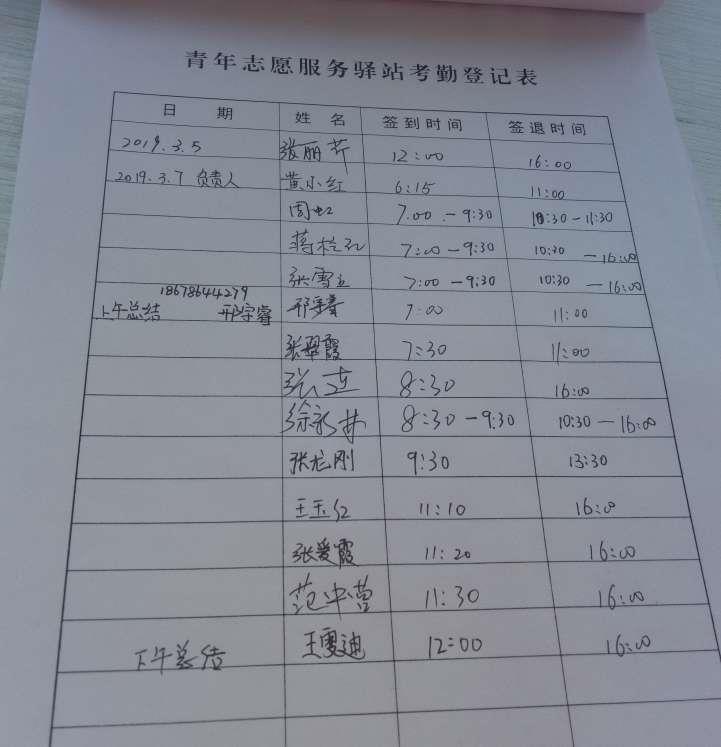 青年志愿服务驿站考勤登记表
日 期 姓 名 签到时间 签退时间
2019.3.5 张丽芹 12:00 16:00
2019.3.7 负责人 黄小红 6:15 11:00
周虹 7.00-9:30 10:30-11:30
蒋 7:00-9:30 10:30-16:00
张雪 7:00-9:30 10:30-16:00
18678644279
上午总结 邢宇睿 邢宇睿 7:00 11:00
张翠霞 7:30 11:00
张莲 8:30 16:00
徐永 8:30-9:30 10:30-16:00
张龙刚 9:30 13:30
王玉红 11:10 16:00
张爱霞 11:20 16:00
范中 11:30 16:00
下午总结 王雯迪 12:00 16:00